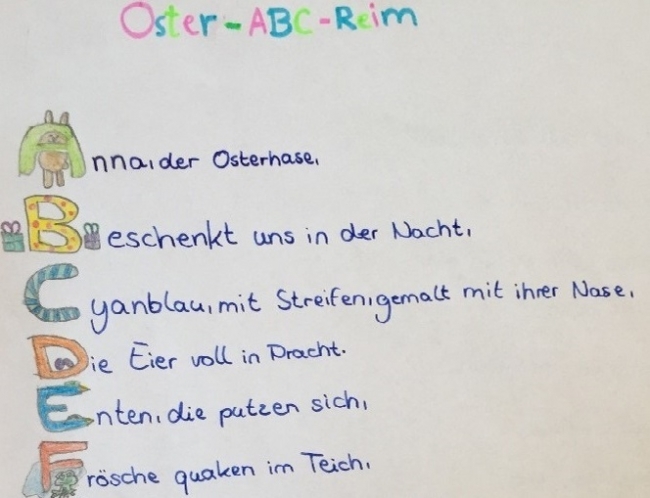 Oster-ABC-Reim
Anna, der Osterhase,
Beschenkt uns in der Nacht,
Cyanblau, mit Streifen, gemalt mit ihrer Nase,
Die Eier voll in Pracht.
Enten, die putzen sich,
Frösche quaken im Teich,